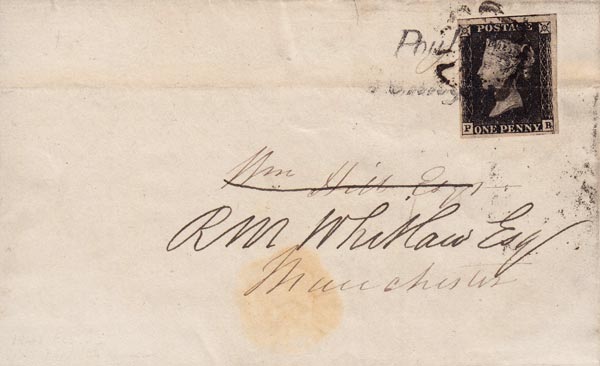 POSTAGE
P ONE PENNY B
Penny
Wm Hill Esqr
R M Whitlaw Esq
Manchester